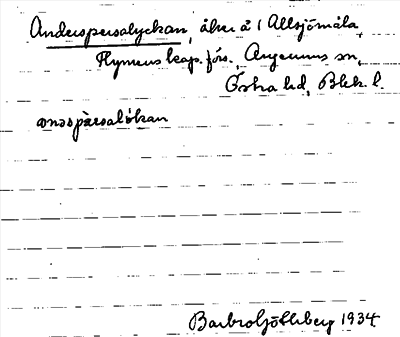 Anderspersalyckan, åker å 1 Allsjömåla,
Flymens kap. förs., Augerums sn,
Östra hd, Blek. l.
anəspàrsalỳkan
Barbro Götlberg 1934.